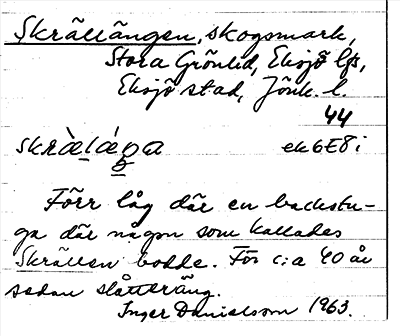 Skrällängen, skogsmark,
Stora Grönlid, Eksjö lfs,
Eksjö stad, Jönk. l.
44
skràlánga ek 6E8i
Förr låg där en backstu-
ga där någon som kallades
Skrällen bodde. För c:a 40 år
sedan slåtteräng.
Inger Danielsson 1963.